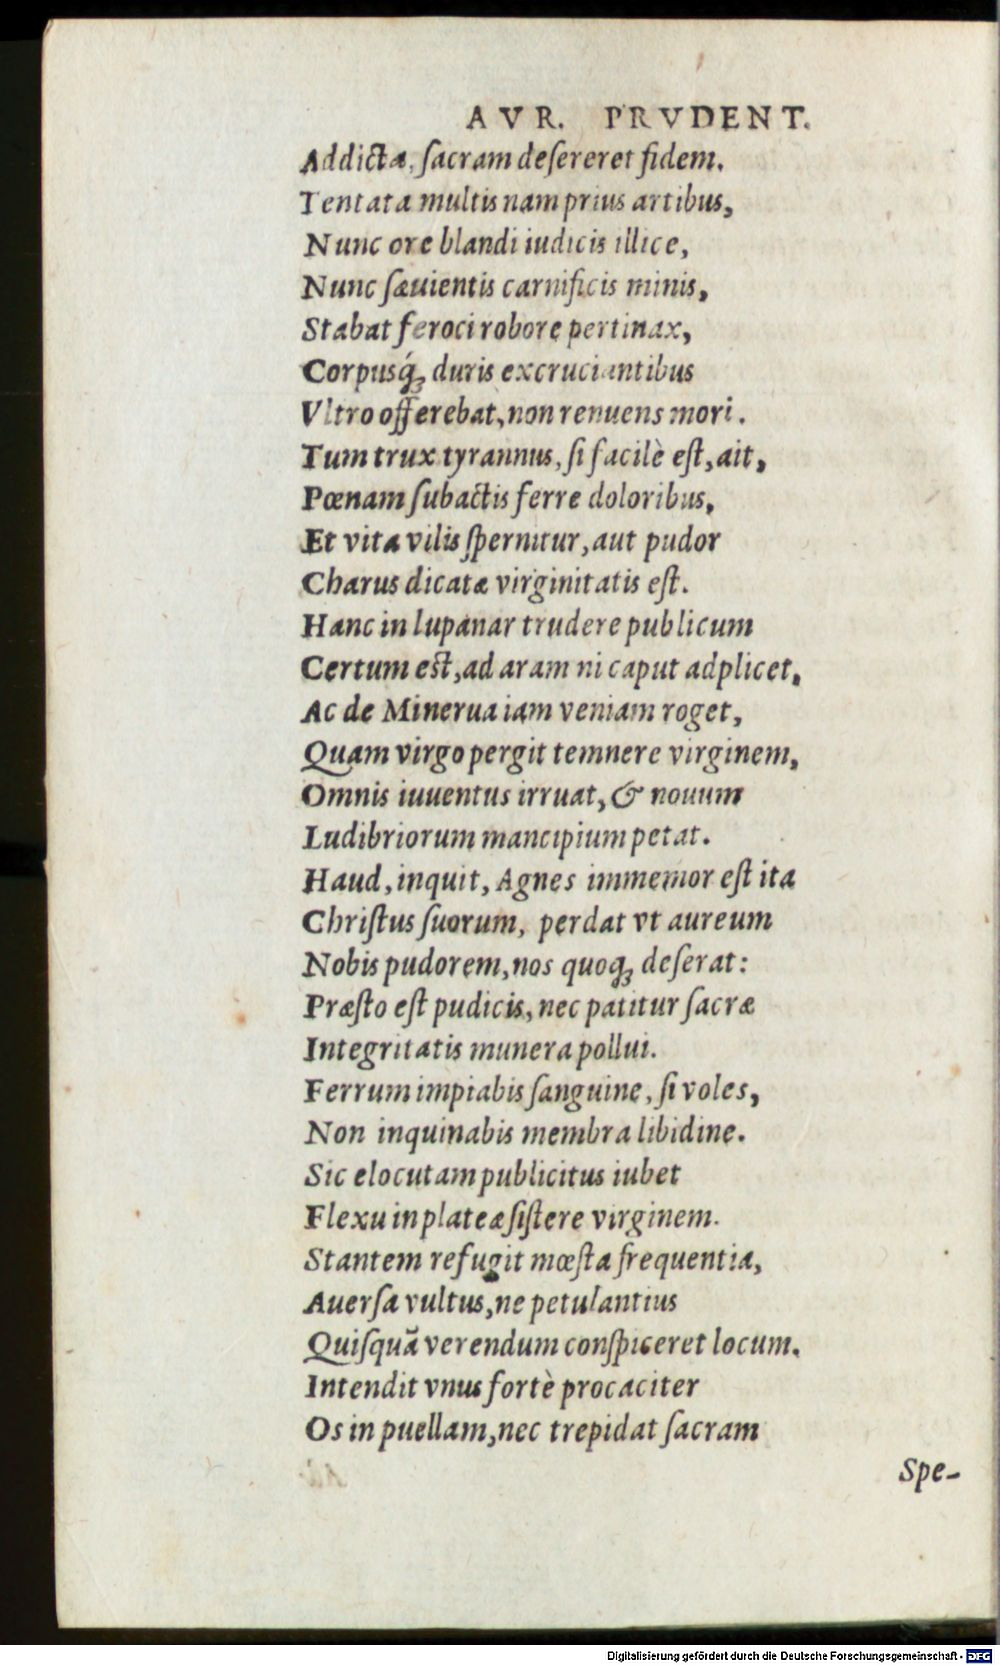 AVR. PRVDENT.
Addicta, ſacram deſereret fidem.
Tentata multis nam prius artibus,
Nunc ore blandi iudicis illice,
Nunc ſæuientis carnificis minis,
Stabat feroci robore pertinax,
Corpusq́ꝫ duris excruciantibus
Vltro offerebat, non renuens mori.
Tum trux tyrannus, ſi facilè eſt, ait,
Pœnam ſubactis ferre doloribus,
Et vita vilis ſpernitur, aut pudor
Charus dicatæ virginitatis eſt.
Hanc in lupanar trudere publicum
Certum eſt, ad aram ni caput adplicet,
Ac de Minerua iam veniam roget,
Quam virgo pergit temnere virginem,
Omnis iuuentus irruat, & nouum
Ludibriorum mancipium petat.
Haud, inquit, Agnes immemor eſt ita
Chriſtus ſuorum, perdat vt aureum
Nobis pudorem, nos quoqꝫ deſerat:
Præſto eſt pudicis, nec patitur ſacræ
Integritatis munera pollui.
Ferrum impiabis ſanguine, ſi voles,
Non inquinabis membra libidine.
Sic elocutam publicitus iubet
Flexu in plateæ ſiſtere virginem.
Stantem refugit mœſta frequentia,
Auerſa vultus, ne petulantius
Quiſquã verendum conſpiceret locum.
Intendit vnus fortè procaciter
Os in puellam, nec trepidat ſacram
Spe-
Digitalisierung gefördert durch die Deutsche Forschungsgemeinschaft - DFG